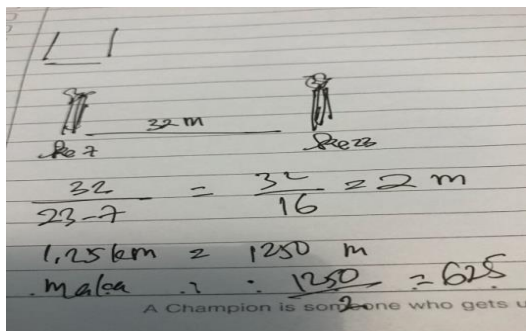 32 m
ke 7 ke 23
32 / 23-7 = 32 / 16 = 2 m
1,25 km = 1250 m
maka : 1250 / 2 = 625
A Champion is someone who gets u